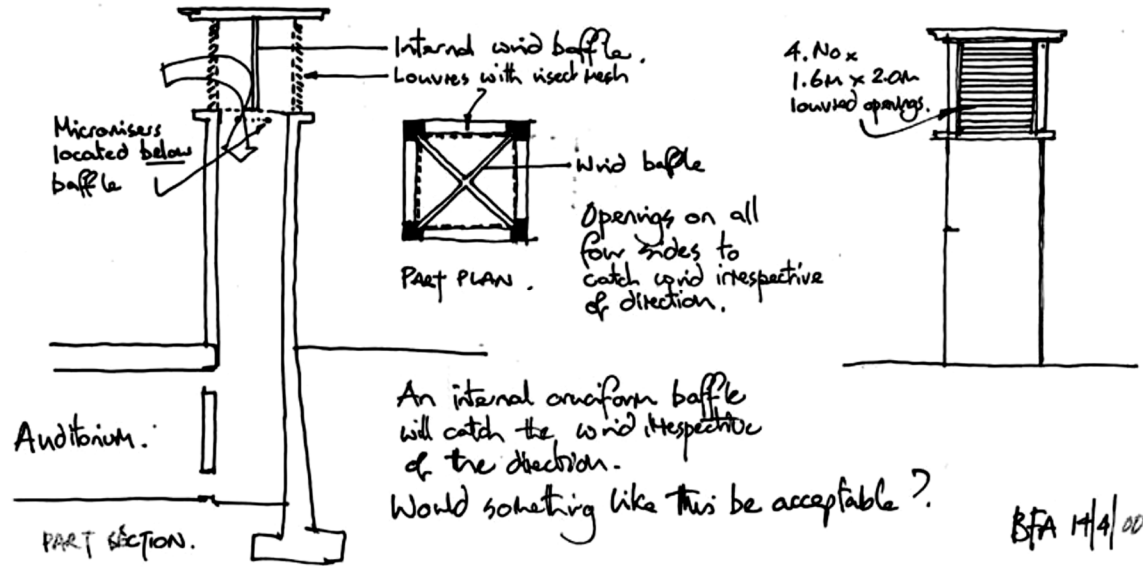 Internal wind baffle.
Louvres with insect mesh
Micronisers
located below
baffle
Auditorium.
PART SECTION.
PART PLAN.
Wind baffle
Openings on all
four sides to
catch wind irrespective
of direction.
4.No x
1.6m x 2.0m
louvred openings.
An internal cruciform baffle
will catch the wind irrespective
of the direction.
Would something like this be acceptable?
BFA 14/4/00